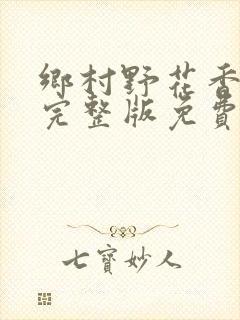 鄉村野花香
完整版免費
七寶妙人